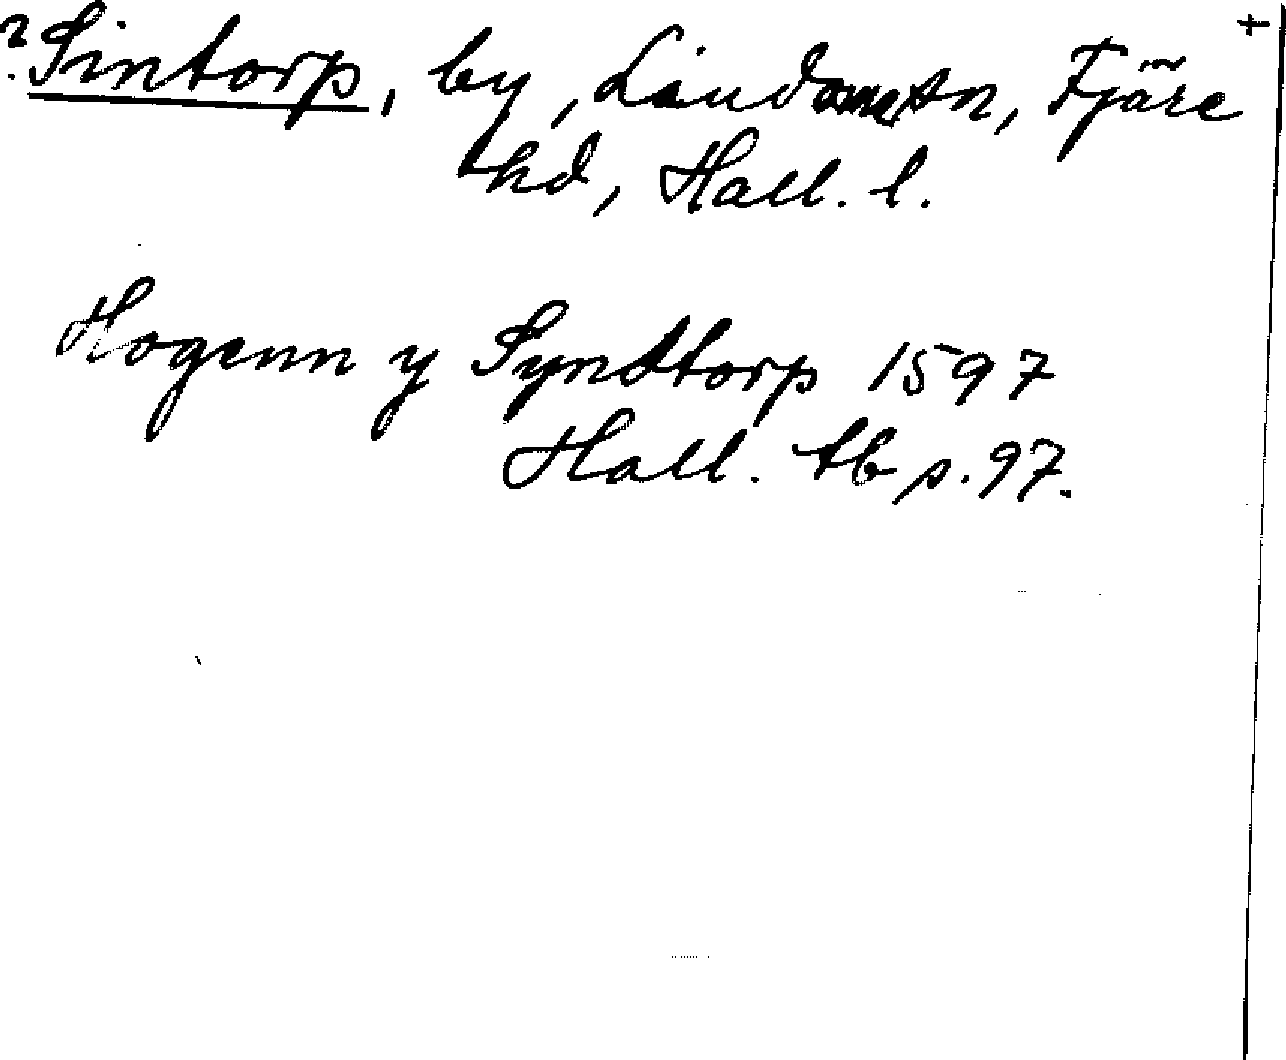 ? Sintorp, by, Lindome sn, Fjäre +
hd, Hall. l.
Hogenn y Syndtorp 1597
Hall. tb s. 97.